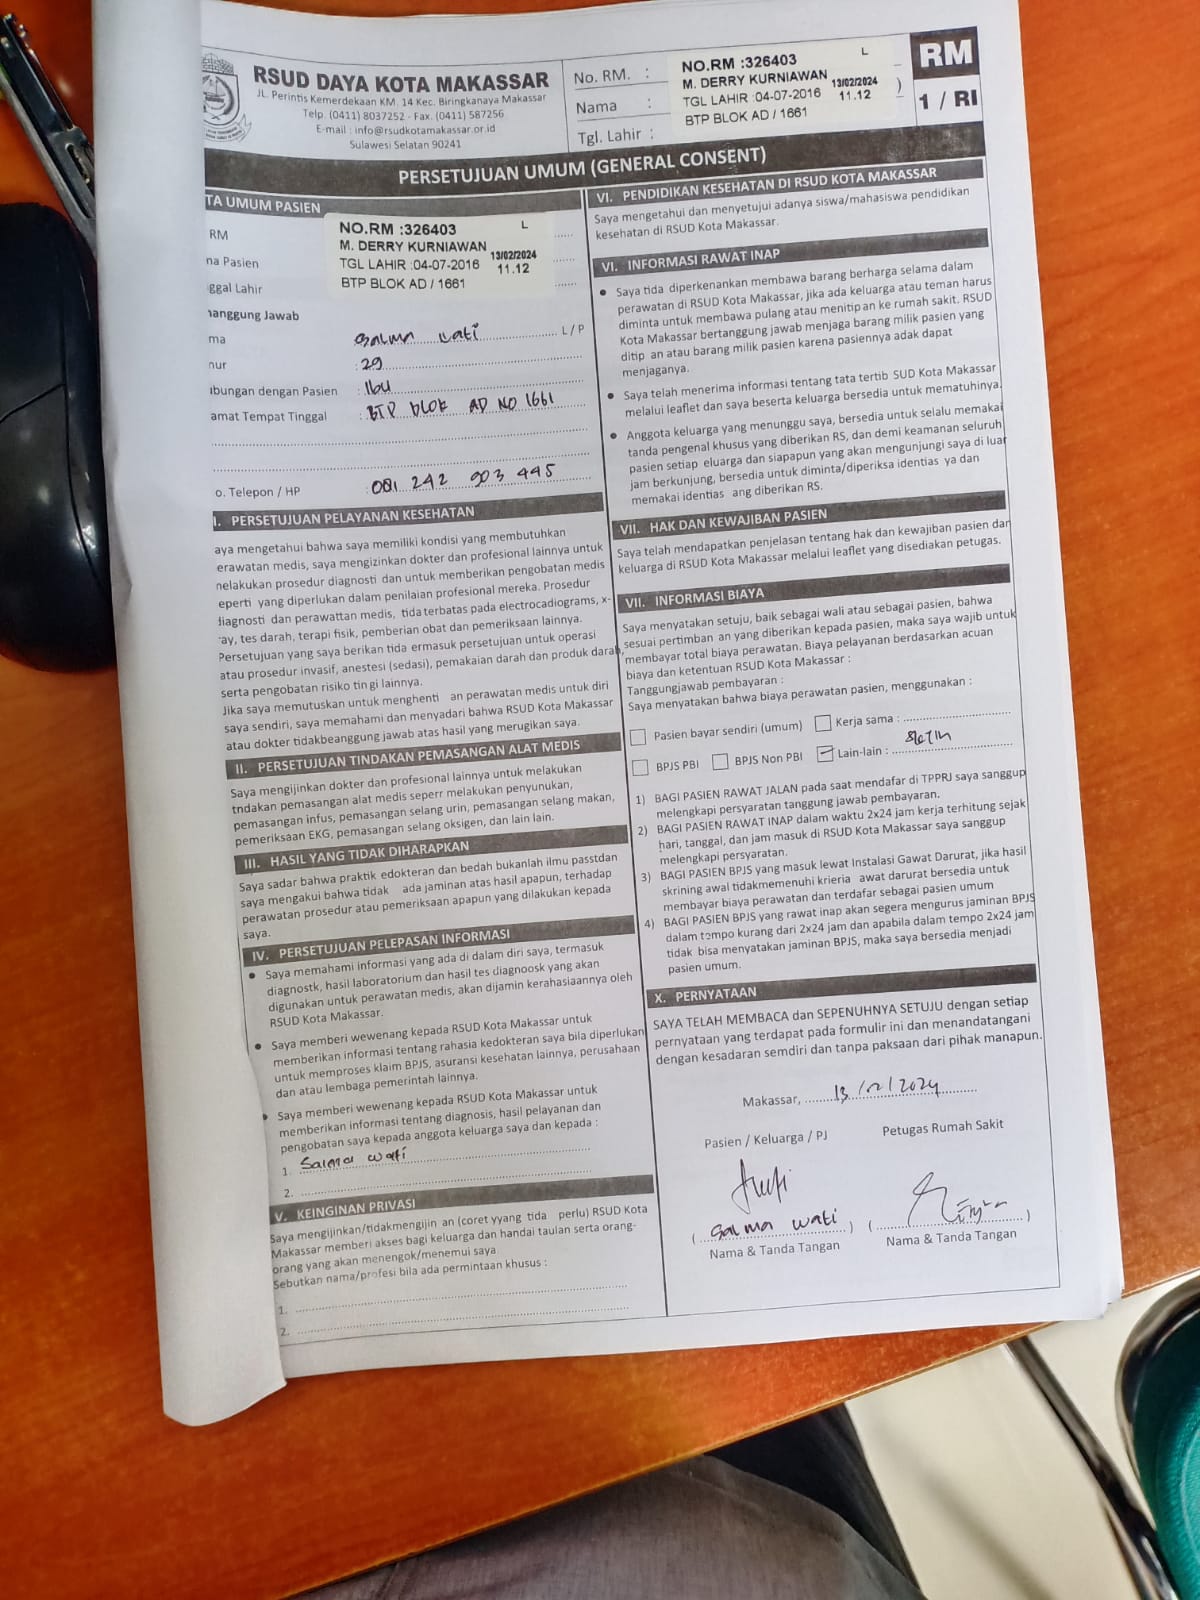 RSUD DAYA KOTA MAKASSAR
JL. Perintis Kemerdekaan KM. 14 Kec. Biringkanaya Makassar
Telp. (0411) 8037252 - Fax. (0411) 587256
E-mail : info@rsudkotamakassar.or.id
Sulawesi Selatan 90241
No. RM. :
Nama :
Tgl. Lahir :
NO.RM :326403 L
M. DERRY KURNIAWAN 13/02/2024
TGL LAHIR :04-07-2016 11.12
BTP BLOK AD / 1661
)
RM
1 / RI
PERSETUJUAN UMUM (GENERAL CONSENT)
TA UMUM PASIEN
RM
na Pasien
ggal Lahir
NO.RM :326403 L
M. DERRY KURNIAWAN 13/02/2024
TGL LAHIR :04-07-2016 11.12
BTP BLOK AD / 1661
nanggung Jawab
ma salma wati L / P
nur : 29
bungan dengan Pasien : Ibu
amat Tempat Tinggal : BTP blok AD NO 1661
o. Telepon / HP : 081 242 903 445
I. PERSETUJUAN PELAYANAN KESEHATAN
aya mengetahui bahwa saya memiliki kondisi yang membutuhkan
erawatan medis, saya mengizinkan dokter dan profesional lainnya untuk
nelakukan prosedur diagnosti dan untuk memberikan pengobatan medis
eperti yang diperlukan dalam penilaian profesional mereka. Prosedur
liagnosti dan perawattan medis, tida terbatas pada electrocadiograms, x-
ray, tes darah, terapi fisik, pemberian obat dan pemeriksaan lainnya.
Persetujuan yang saya berikan tida ermasuk persetujuan untuk operasi
atau prosedur invasif, anestesi (sedasi), pemakaian darah dan produk darah,
serta pengobatan risiko tin gi lainnya.
Jika saya memutuskan untuk menghenti an perawatan medis untuk diri
saya sendiri, saya memahami dan menyadari bahwa RSUD Kota Makassar
atau dokter tidakbeanggung jawab atas hasil yang merugikan saya.
II. PERSETUJUAN TINDAKAN PEMASANGAN ALAT MEDIS
Saya mengijinkan dokter dan profesional lainnya untuk melakukan
tndakan pemasangan alat medis seperr melakukan penyunukan,
pemasangan infus, pemasangan selang urin, pemasangan selang makan,
pemeriksaan EKG, pemasangan selang oksigen, dan lain lain.
III. HASIL YANG TIDAK DIHARAPKAN
Saya sadar bahwa praktik edokteran dan bedah bukanlah ilmu passtdan
saya mengakui bahwa tidak ada jaminan atas hasil apapun, terhadap
perawatan prosedur atau pemeriksaan apapun yang dilakukan kepada
saya.
IV. PERSETUJUAN PELEPASAN INFORMASI
• Saya memahami informasi yang ada di dalam diri saya, termasuk
diagnostk, hasil laboratorium dan hasil tes diagnoosk yang akan
digunakan untuk perawatan medis, akan dijamin kerahasiaannya oleh
RSUD Kota Makassar.
• Saya memberi wewenang kepada RSUD Kota Makassar untuk
memberikan informasi tentang rahasia kedokteran saya bila diperlukan
untuk memproses klaim BPJS, asuransi kesehatan lainnya, perusahaan
dan atau lembaga pemerintah lainnya.
• Saya memberi wewenang kepada RSUD Kota Makassar untuk
memberikan informasi tentang diagnosis, hasil pelayanan dan
pengobatan saya kepada anggota keluarga saya dan kepada :
1. Salma wati
2.
V. KEINGINAN PRIVASI
Saya mengijinkan/tidakmengijin an (coret yyang tida perlu) RSUD Kota
Makassar memberi akses bagi keluarga dan handai taulan serta orang-
orang yang akan menengok/menemui saya
Sebutkan nama/profesi bila ada permintaan khusus :
1.
2.
VI. PENDIDIKAN KESEHATAN DI RSUD KOTA MAKASSAR
Saya mengetahui dan menyetujui adanya siswa/mahasiswa pendidikan
kesehatan di RSUD Kota Makassar.
VI. INFORMASI RAWAT INAP
• Saya tida diperkenankan membawa barang berharga selama dalam
perawatan di RSUD Kota Makassar, jika ada keluarga atau teman harus
diminta untuk membawa pulang atau menitip an ke rumah sakit. RSUD
Kota Makassar bertanggung jawab menjaga barang milik pasien yang
ditip an atau barang milik pasien karena pasiennya adak dapat
menjaganya.
• Saya telah menerima informasi tentang tata tertib SUD Kota Makassar
melalui leaflet dan saya beserta keluarga bersedia untuk mematuhinya.
• Anggota keluarga yang menunggu saya, bersedia untuk selalu memakai
tanda pengenal khusus yang diberikan RS, dan demi keamanan seluruh
pasien setiap eluarga dan siapapun yang akan mengunjungi saya di luar
jam berkunjung, bersedia untuk diminta/diperiksa identias ya dan
memakai identias ang diberikan RS.
VII. HAK DAN KEWAJIBAN PASIEN
Saya telah mendapatkan penjelasan tentang hak dan kewajiban pasien dan
keluarga di RSUD Kota Makassar melalui leaflet yang disediakan petugas.
VII. INFORMASI BIAYA
Saya menyatakan setuju, baik sebagai wali atau sebagai pasien, bahwa
sesuai pertimban an yang diberikan kepada pasien, maka saya wajib untuk
membayar total biaya perawatan. Biaya pelayanan berdasarkan acuan
biaya dan ketentuan RSUD Kota Makassar :
Tanggungjawab pembayaran :
Saya menyatakan bahwa biaya perawatan pasien, menggunakan :
Pasien bayar sendiri (umum) Kerja sama :
BPJS PBI BPJS Non PBI Lain-lain :
1) BAGI PASIEN RAWAT JALAN pada saat mendafar di TPPRJ saya sanggup
melengkapi persyaratan tanggung jawab pembayaran.
2) BAGI PASIEN RAWAT INAP dalam waktu 2x24 jam kerja terhitung sejak
hari, tanggal, dan jam masuk di RSUD Kota Makassar saya sanggup
melengkapi persyaratan.
3) BAGI PASIEN BPJS yang masuk lewat Instalasi Gawat Darurat, jika hasil
skrining awal tidakmemenuhi krieria awat darurat bersedia untuk
membayar biaya perawatan dan terdafar sebagai pasien umum
4) BAGI PASIEN BPJS yang rawat inap akan segera mengurus jaminan BPJS
dalam tempo kurang dari 2x24 jam dan apabila dalam tempo 2x24 jam
tidak bisa menyatakan jaminan BPJS, maka saya bersedia menjadi
pasien umum.
X. PERNYATAAN
SAYA TELAH MEMBACA dan SEPENUHNYA SETUJU dengan setiap
pernyataan yang terdapat pada formulir ini dan menandatangani
dengan kesadaran semdiri dan tanpa paksaan dari pihak manapun.
Makassar, 13/02/2024
Pasien / Keluarga / PJ Petugas Rumah Sakit
( salma wati ) ( )
Nama & Tanda Tangan Nama & Tanda Tangan